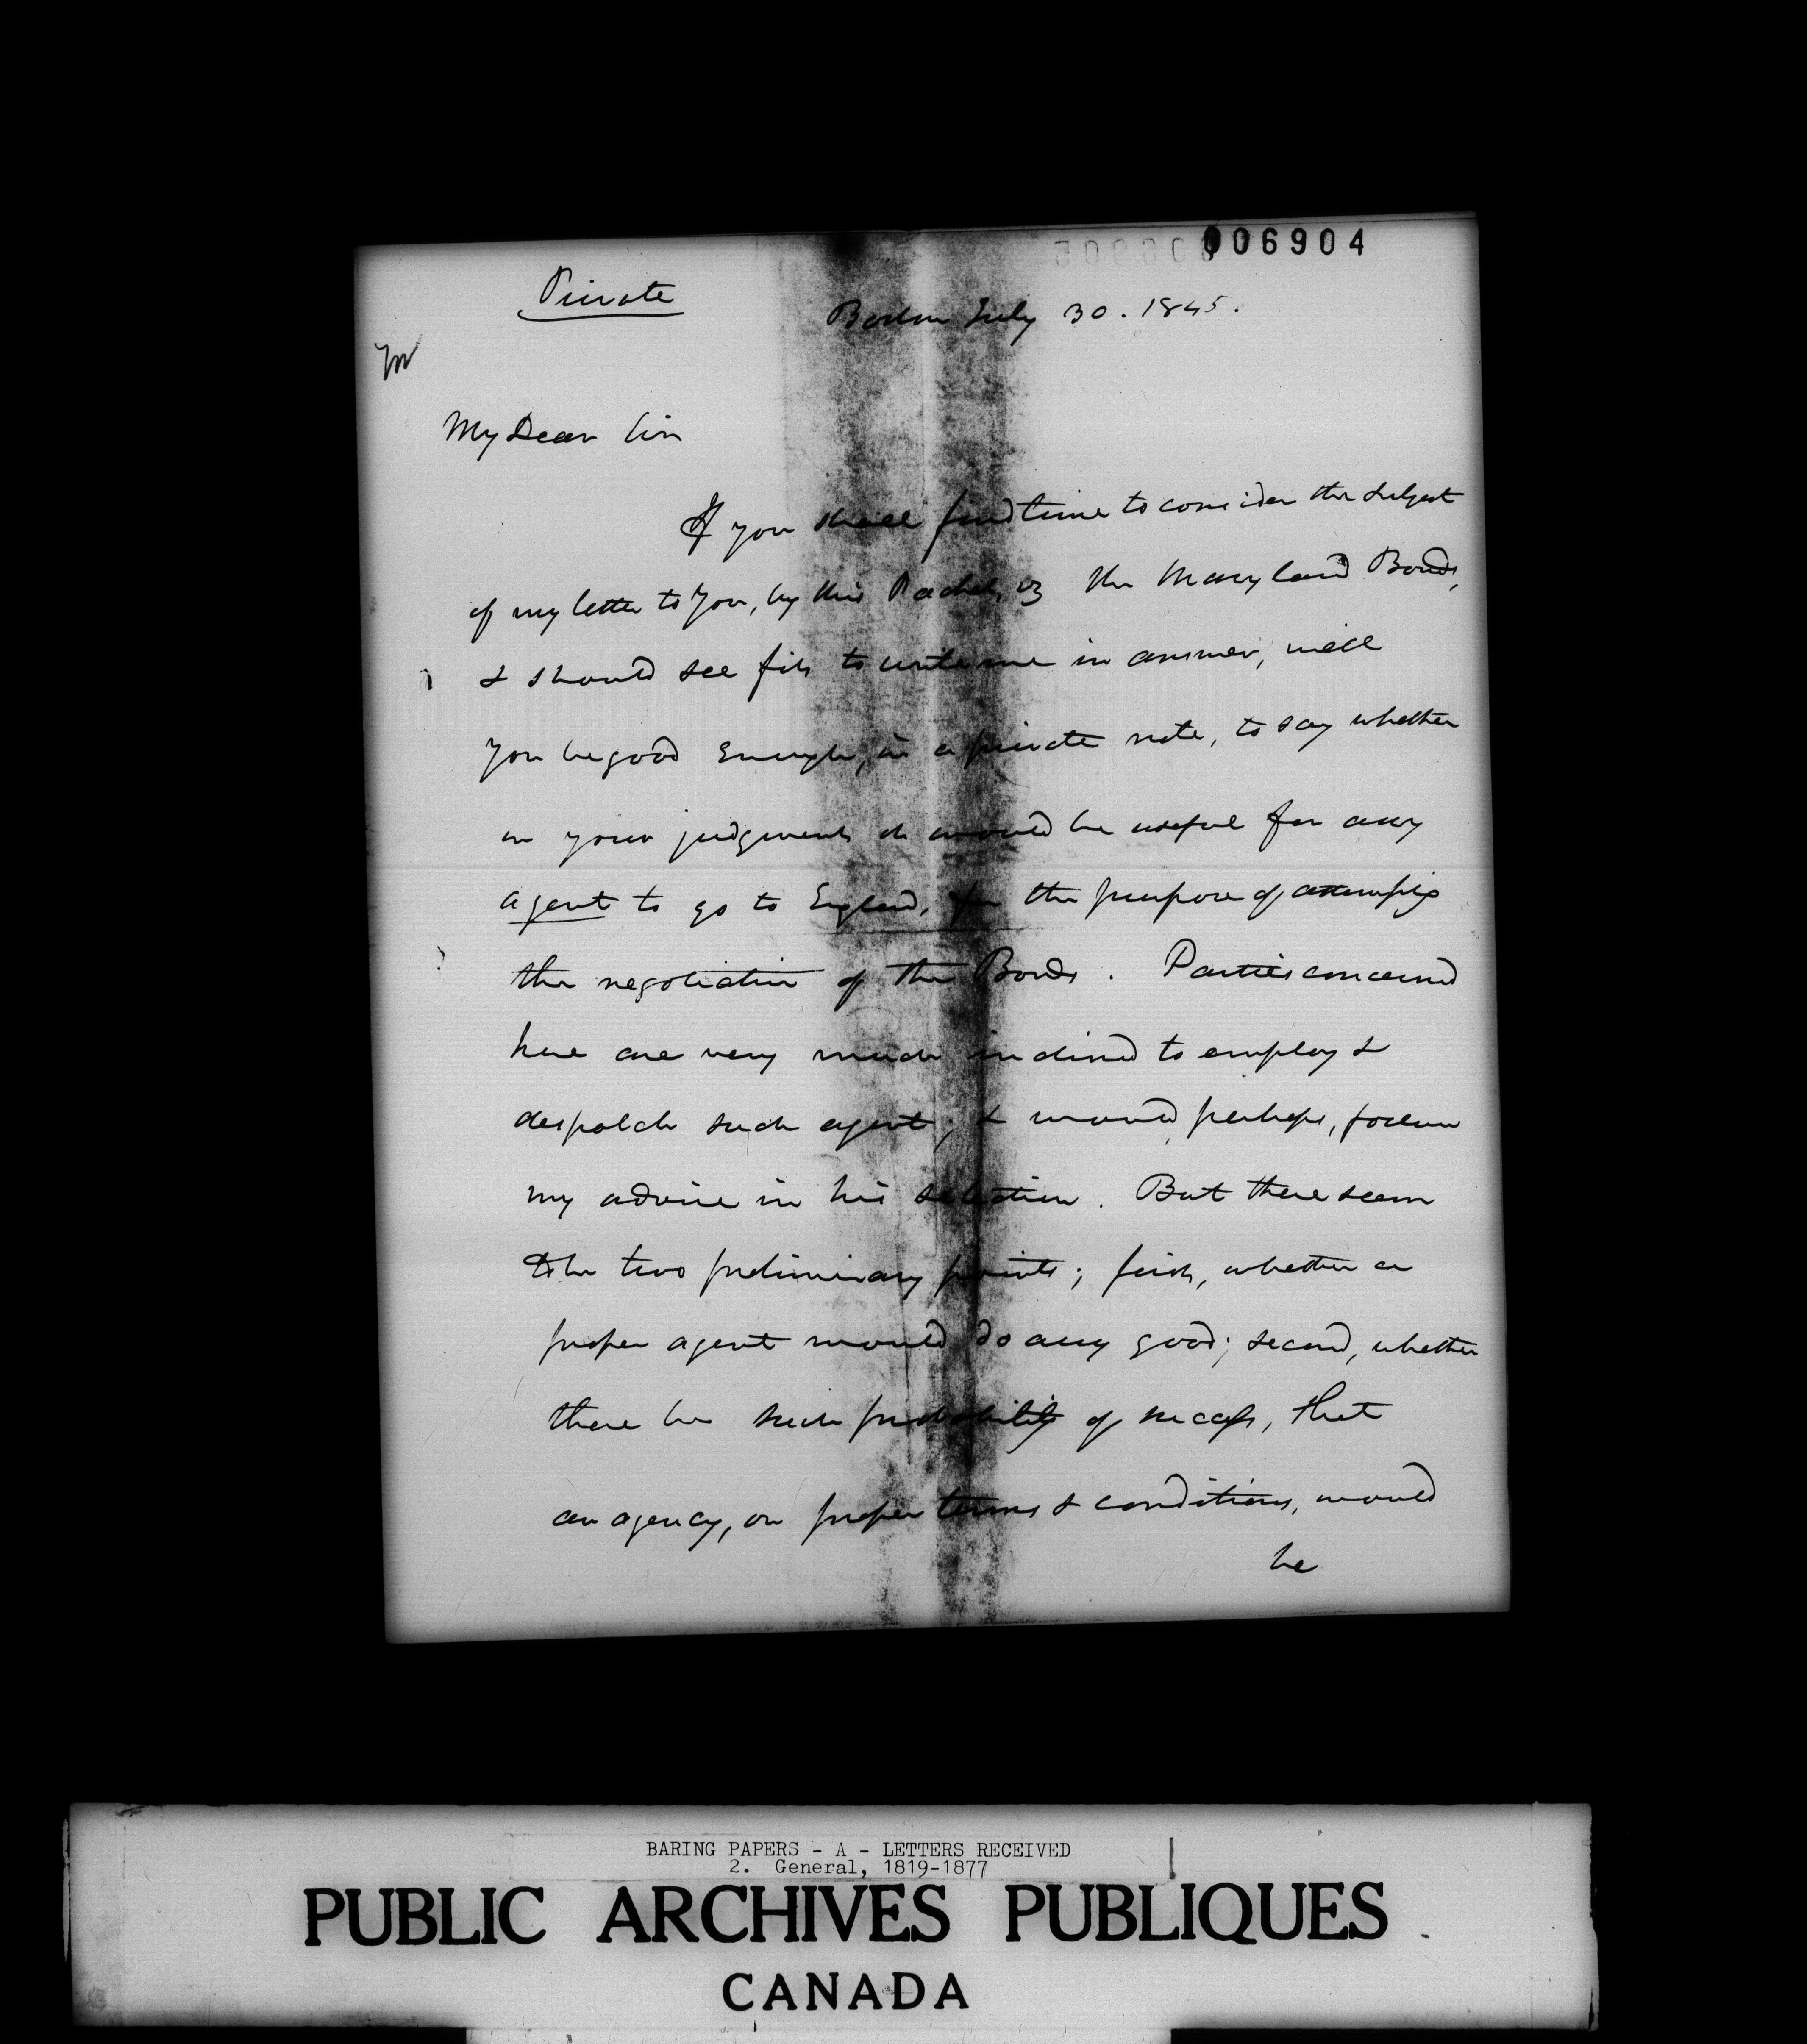 006904
Private
Boston July 30. 1845.
My Dear Sir
If you shall find time to consider the subject
of my letter to you, by this Packet, viz the Maryland Bonds,
& should see fit to write me in answer, will
you be good enough, in a private note, to say whether
in your judgment it would be useful for any
agent to go to England, for the purpose of attempting
the negotiation of the Bonds. Parties concerned
here are very much inclined to employ &
despatch such agent; & would perhaps, follow
my advice in his selection. But there seem
to be two preliminary points; first, whether a
proper agent would do any good; second, whether
there be such probability of success, that
an agency, on proper terms & conditions, would
be
BARING PAPERS - A - LETTERS RECEIVED
2. General, 1819-1877
PUBLIC ARCHIVES PUBLIQUES
CANADA